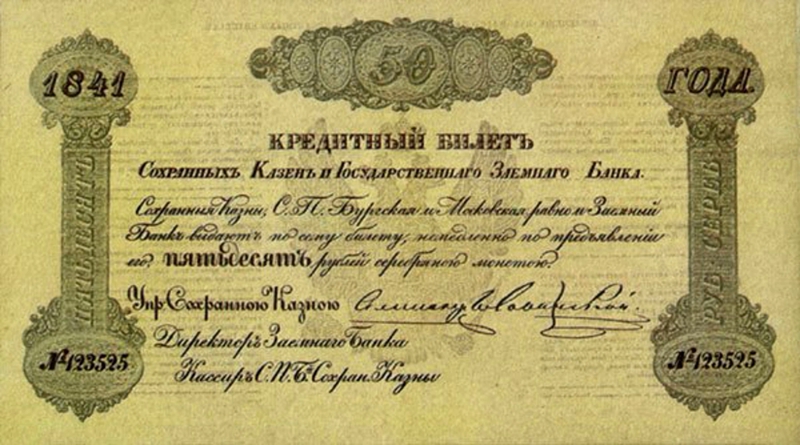 50
1841
ГОДА.
КРЕДИТНЫЙ БИЛЕТЪ
Сохранныхъ Казенъ и Государственнаго Заемнаго Банка.
Сохранныя Казны, С.П. Бургская и Московская, равно и Заемный
Банкъ выдаютъ по сему билету, немедленно по предъявленіи
его, пятьдесятъ рублей серебряною монетою.
Упр Сохранною Казною
Директоръ Заемнаго Банка
Кассиръ С.П.Б. Сохран. Казны
ПЯТЬДЕСЯТЪ
РУБ СЕРЕБ
№123525
№123525